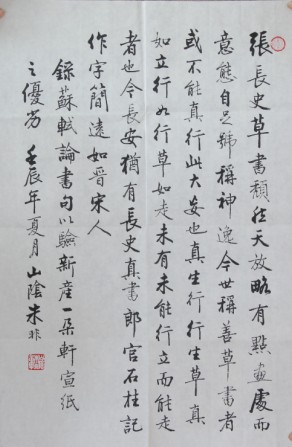 張長史草書頹然天放略有點畫處而
意態自足號稱神逸今世稱善草書者
或不能真行此大妄也真生行行生草真
如立行如行草如走未有未能行立而能走
者也今長安猶有長史真書郎官石柱記
作字簡遠如晉宋人
錄蘇軾論書句以驗新產一朵軒宣紙
之優劣 壬辰年夏月山陰朱非